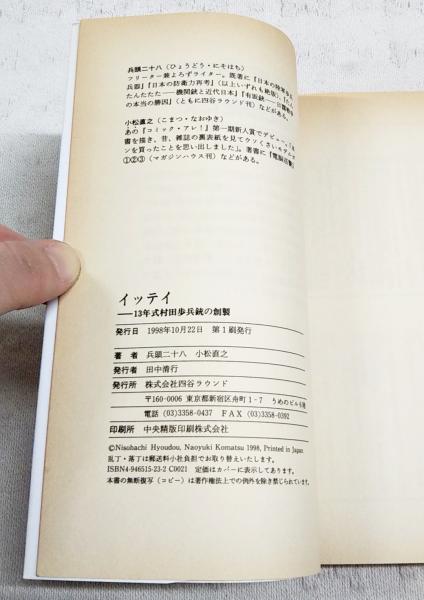 兵頭二十八（ひょうどう・にそはち）
フリーター兼よろずライター。既著に『日本の陸軍歩兵
兵器』『日本の防衛力再考』（以上いずれも絶版）『たん
たんたたた――機関銃と近代日本』『有坂銃――日露戦争
の本当の勝因』（ともに四谷ラウンド刊）などがある。
小松直之（こまつ・なおゆき）
あの『コミック・アレ！』第一期新人賞でデビュー。
書を描き、昔、雑誌の裏表紙を見てウソくさいモデルガ
ンを買ったことを思い出しました」。著書に『電脳
①②③（マガジンハウス刊）などがある。
イッテイ
――13年式村田歩兵銃の創製
発行日 1998年10月22日 第1刷発行
著者 兵頭二十八 小松直之
発行者 田中清行
発行所 株式会社四谷ラウンド
〒160-0006 東京都新宿区舟町1-7 うめのビル6階
電話 (03)3358-0437 FAX (03)3358-0392
印刷所 中央精版印刷株式会社
©Nisohachi Hyoudou, Naoyuki Komatsu 1998, Printed in Japan
乱丁・落丁は郵送料小社負担でお取り替えいたします。
ISBN4-946515-23-2 C0021 定価はカバーに表示してあります。
本書の無断複写（コピー）は著作権法上での例外を除き禁じられています。